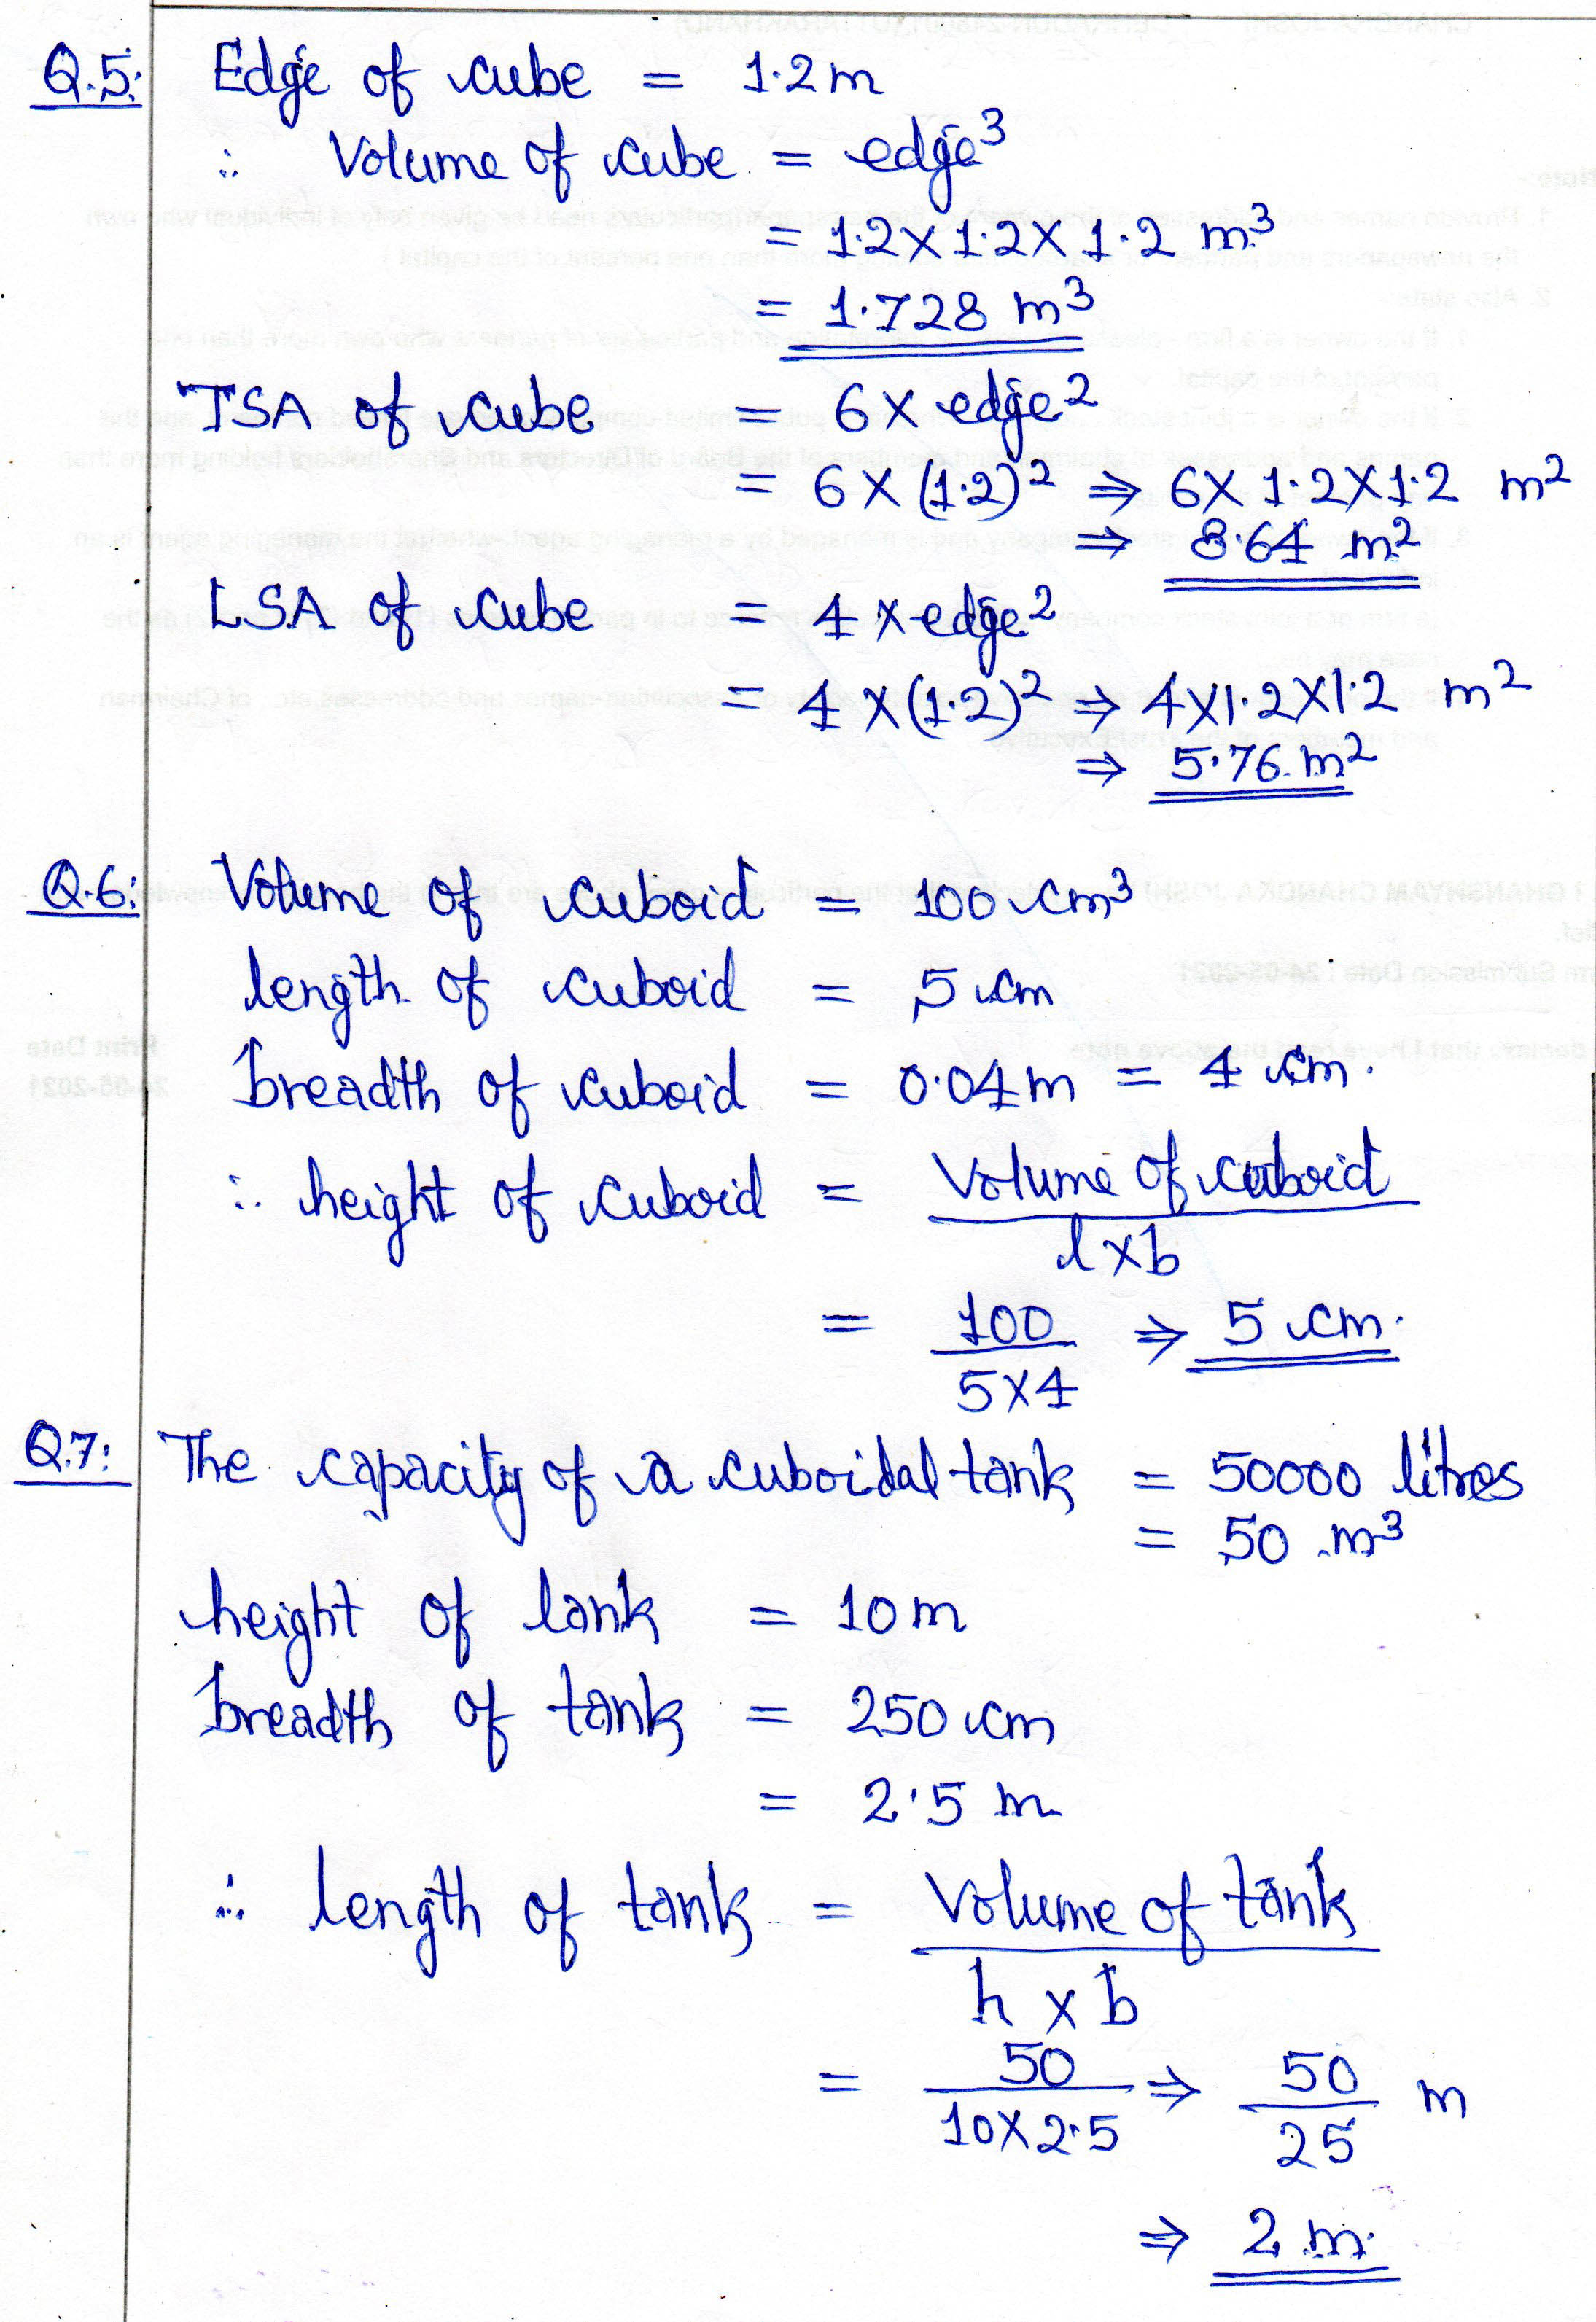 Q.5: Edge of cube = 1.2 m
∴ Volume of cube = edge³
= 1.2 × 1.2 × 1.2 m³
= 1.728 m³
TSA of cube = 6 × edge²
= 6 × (1.2)² ⇒ 6 × 1.2 × 1.2 m²
⇒ 8.64 m²
LSA of cube = 4 × edge²
= 4 × (1.2)² ⇒ 4 × 1.2 × 1.2 m²
⇒ 5.76 m²
Q.6: Volume of cuboid = 100 cm³
length of cuboid = 5 cm
breadth of cuboid = 0.04 m = 4 cm.
∴ height of cuboid = Volume of cuboid
l × b
= 100 ⇒ 5 cm.
5 × 4
Q.7: The capacity of a cuboidal tank = 50000 litres
= 50 m³
height of tank = 10 m
breadth of tank = 250 cm
= 2.5 m
∴ length of tank = Volume of tank
h × b
= 50 ⇒ 50 m
10 × 2.5 25
⇒ 2 m.